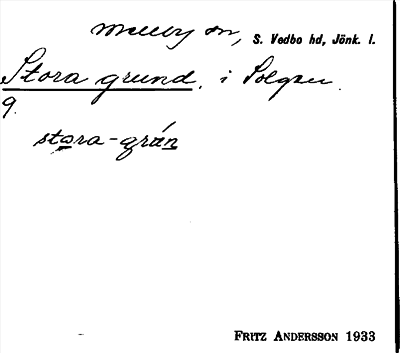 S. Vedbo hd, Jönk. l.
Stora grund, i Solgen.
9.
stora-grán
FRITZ ANDERSSON 1933